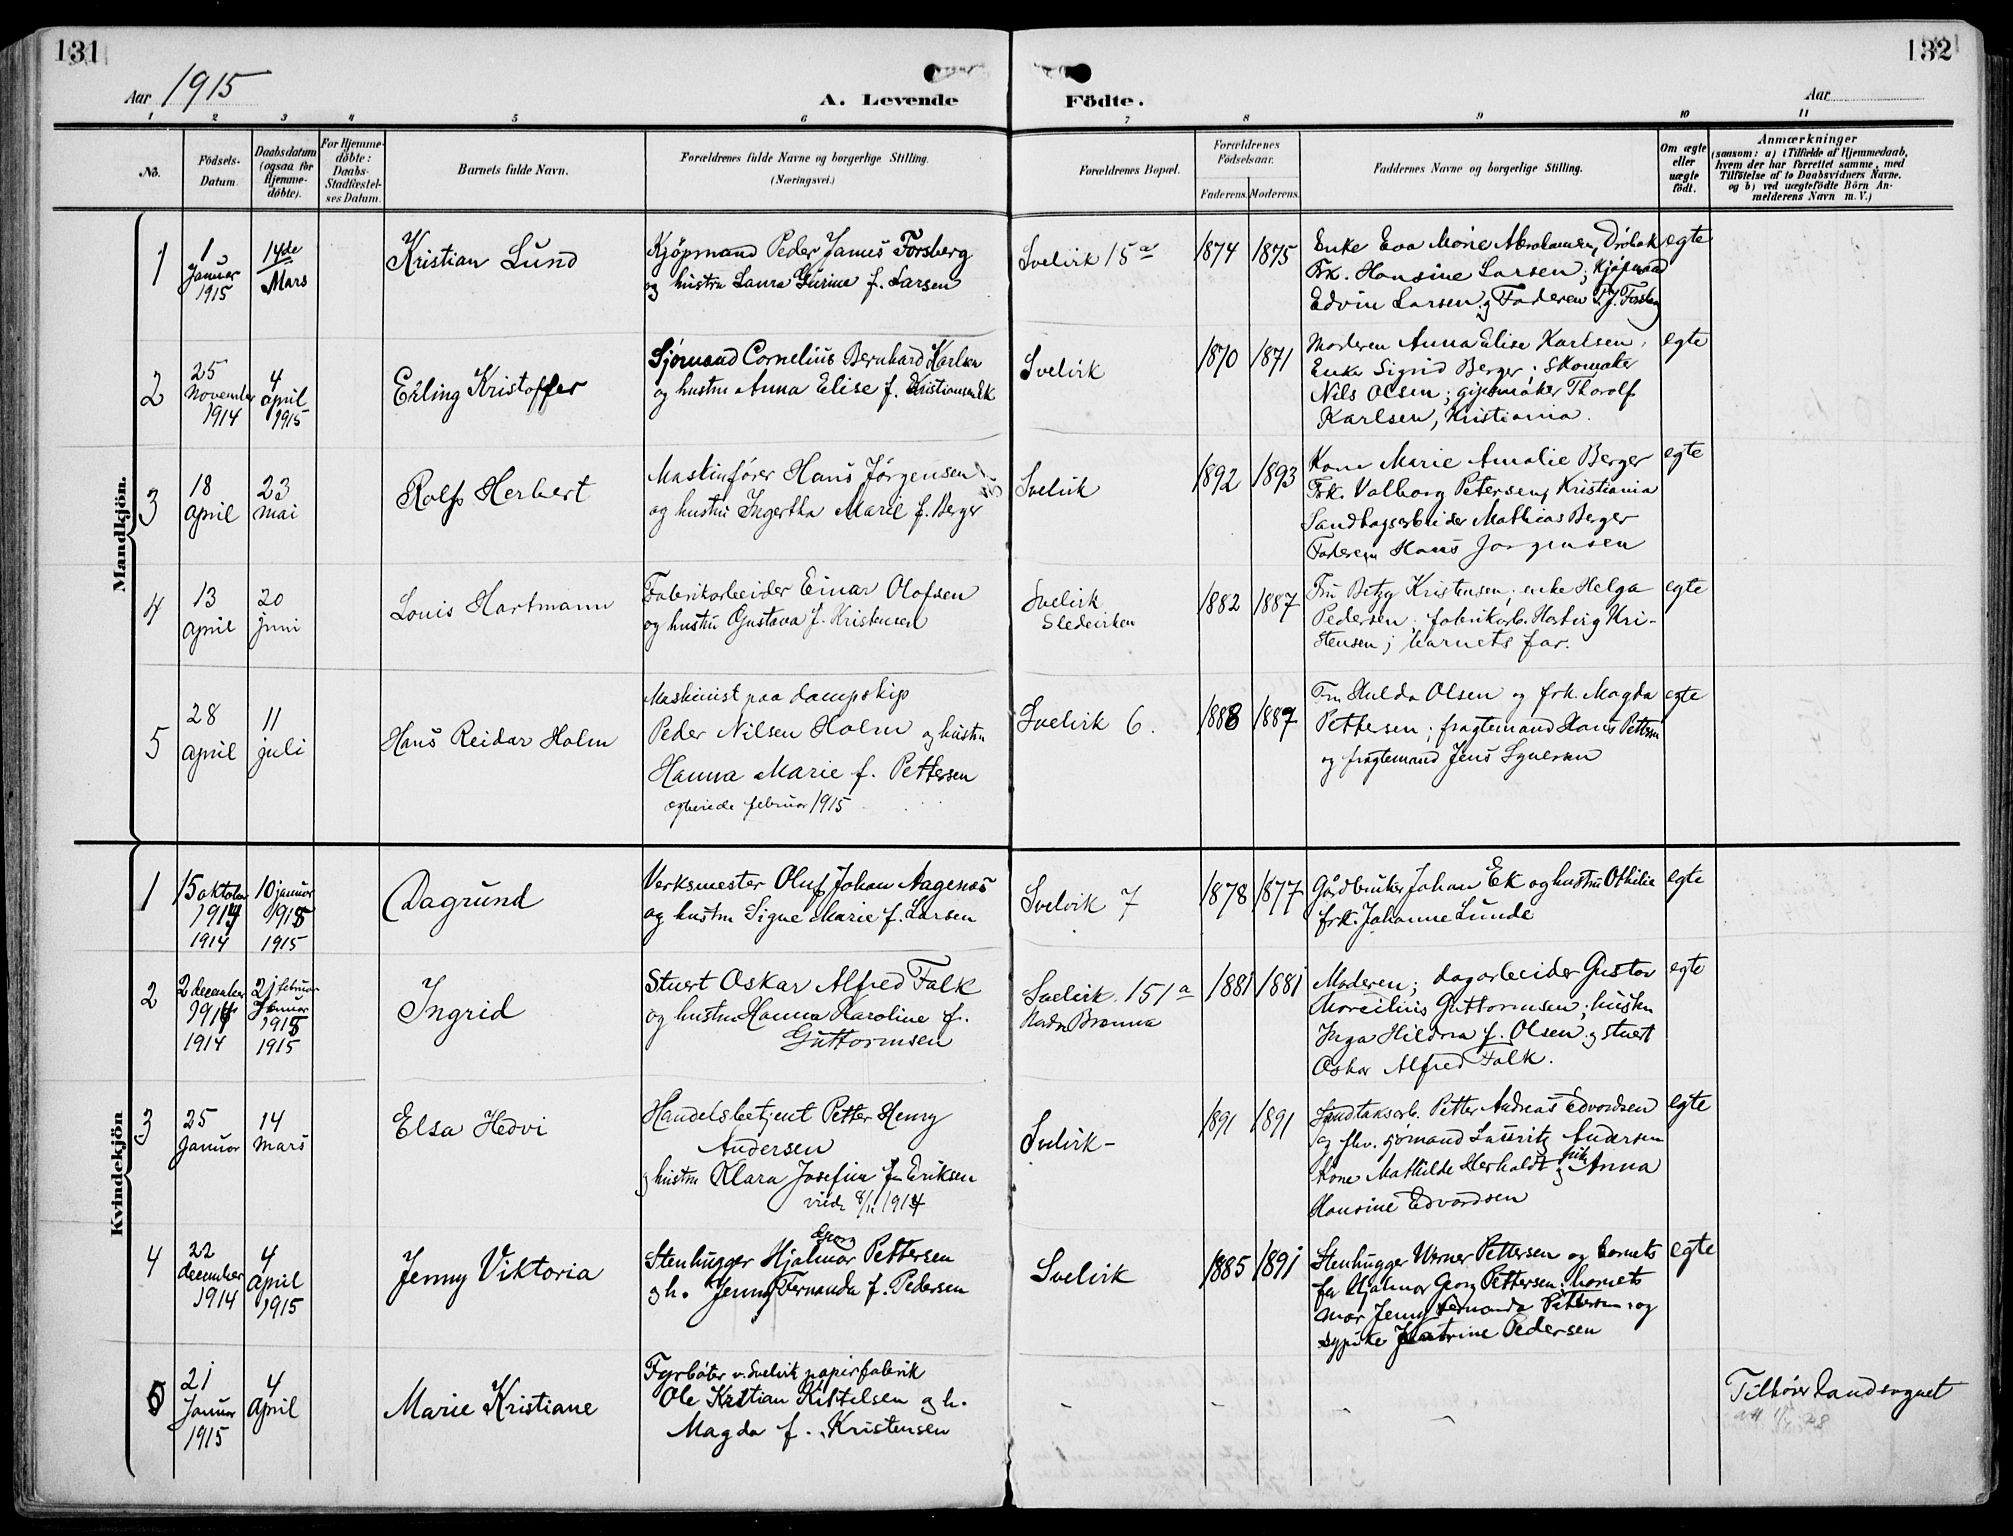 131
132
Aar 1915
A. Levende
Födte.
Aar
1 2 3 4 5 6 7 8 9 10 11
No.
Födsels-
Datum.
Daabsdatum
(ogsaa for
Hjemme-
döbte).
For Hjemme-
döbte:
Daabs-
Stadfæstel-
ses Datum.
Barnets fulde Navn.
Forældrenes fulde Navne og borgerlige Stilling.
(Næringsvei.)
Forældrenes Bopæl.
Forældrenes
Födselsaar.
Faderens. Moderens.
Faddernes Navne og borgerlige Stilling.
Om ægte
eller
uægte
födt.
Anmærkninger
(saasom: a) i Tilfælde af Hjemmedaab,
hvem der har forrettet samme, med
Tilföielse af to Daabsvidners Navne,
og b) ved uægtefödte Börn An-
melderens Navn m. V.)
Mandkjön.
1
1
Januar
1915
14de
Mars
Kristian Lund
Kjøpmand Peder James Forsberg
og hustru Laura Gurine f. Larsen
Svelvik 15 a
1874
1875
Enke Eva Marie Abrahamsen, Drøbak
Frk. Hansine Larsen; Kjøpmand
Edvin Larsen og Faderen P.J. Forsberg
egte
2
25
November
1914
4
april
1915
Erling Kristoffer
Sjømand Cornelius Bernhard Karlsen
og hustru Anna Elise f. Kristiansen Ek
Svelvik
1870
1871
Moderen Anna Elise Karlsen,
Enke Sigrid Berger; Skomaker
Nils Olsen; gipsmaker Thorolf
Karlsen, Kristiania.
egte
3
18
april
23
mai
Rolf Herbert
Maskinfører Hans Jørgensen
og hustru Ingertha Marie f. Berger
Svelvik
1892
1893
Kone Marie Amalie Berger
Frk. Valborg Petersen, Kristiania
Sandtagsarbeider Mathias Berger
Faderen Hans Jørgensen
egte
4
13
april
20
juni
Louis Hartmann
Fabrikarbeider Einar Olafsen
og hustru Gustava f. Kristensen
Svelvik
1882
1887
Fru Betzy Kristensen; enke Helga
Pedersen; fabrikarb. Hartvig Kri-
stensen; barnets far.
egte
5
28
april
11
juli
Hans Reidar Holm
Maskinist paa dampskip
Peder Nilsen Holm og hustru
Hanna Marie f. Pettersen
egteviede februar 1915
Svelvik 6.
1888
1887
Fru Hulda Olsen og frk. Magda
Pettersen; fragtemand Hans Pettersen
og fragtemand Jens Syversen
egte
Kvindekjön
1
15 oktober
1914
1914
10 januar
1915
1915
Dagrund
Verksmester Oluf Johan Aagenæs
og hustru Signe Marie f. Larsen
Svelvik 7
1878
1877
Gårdbruker Johan Ek og hustru Othilie
frk. Johanne Lunde
egte
2
2 december
1914
1914
21 februar
Januar
1915
1915
Ingrid
Stuert Oskar Alfred Falk
og hustru Hanna Karoline f.
Guttormsen
Svelvik 151 a
1881
1881
Moderen; dagarbeider Gustav
Marcelius Guttormsen; hustru
Inga Hildria f. Olsen og stuert
Oskar Alfred Falk.
egte
3
25
Januar
14
mars
Elsa Hedvi
Handelsbetjent Petter Henry
Andersen
og hustru Klara Josefine f. Eriksen
viede 8/11 1914
Svelvik
1891
1891
Sandtaksarb. Petter Andreas Edvardsen
og fhv. sjømand Lauritz Andersen
Kone Mathilde Herholdt og pike Anna
Hansine Edvardsen
egte
4
22
december
1914
4
April
1915
Jenny Viktoria
Georg
Stenhugger Hjalmar Pettersen
og h. Jenny Fernanda f. Pedersen
Svelvik
1885
1891
Stenhugger Werner Pettersen og barnets
far Hjalmar Georg Pettersen; barnets
mor Jenny Fernanda Pettersen og
sypike Katrine Pedersen
egte
5
21
Januar
1915
4
April
Marie Kristiane
Fyrbøter v. Svelvik papirfabrik
Ole Kristian Kittelsen og h.
Magda f. Kristensen
Tilhører Landsognet